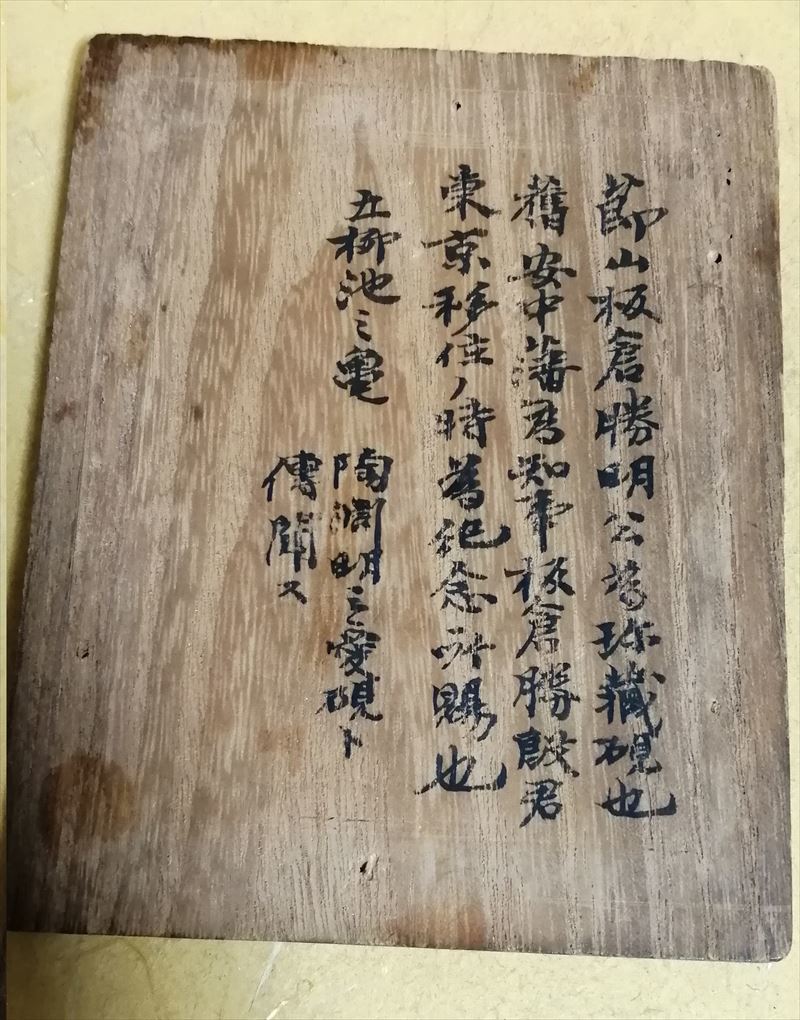 節山板倉勝明公嘗珍藏硯也
舊安中藩為知事板倉勝殷君
東京移住ノ時為紀念所賜也
五柳池之亀
陶淵明之愛硯ト
傳聞ス